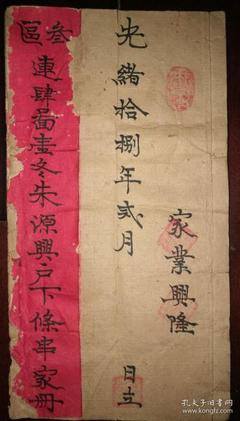 家業興隆
光緒拾捌年弍月 日立
叁區
連肆啚壹冬朱源興戶下條串家冊
孔夫子旧书网